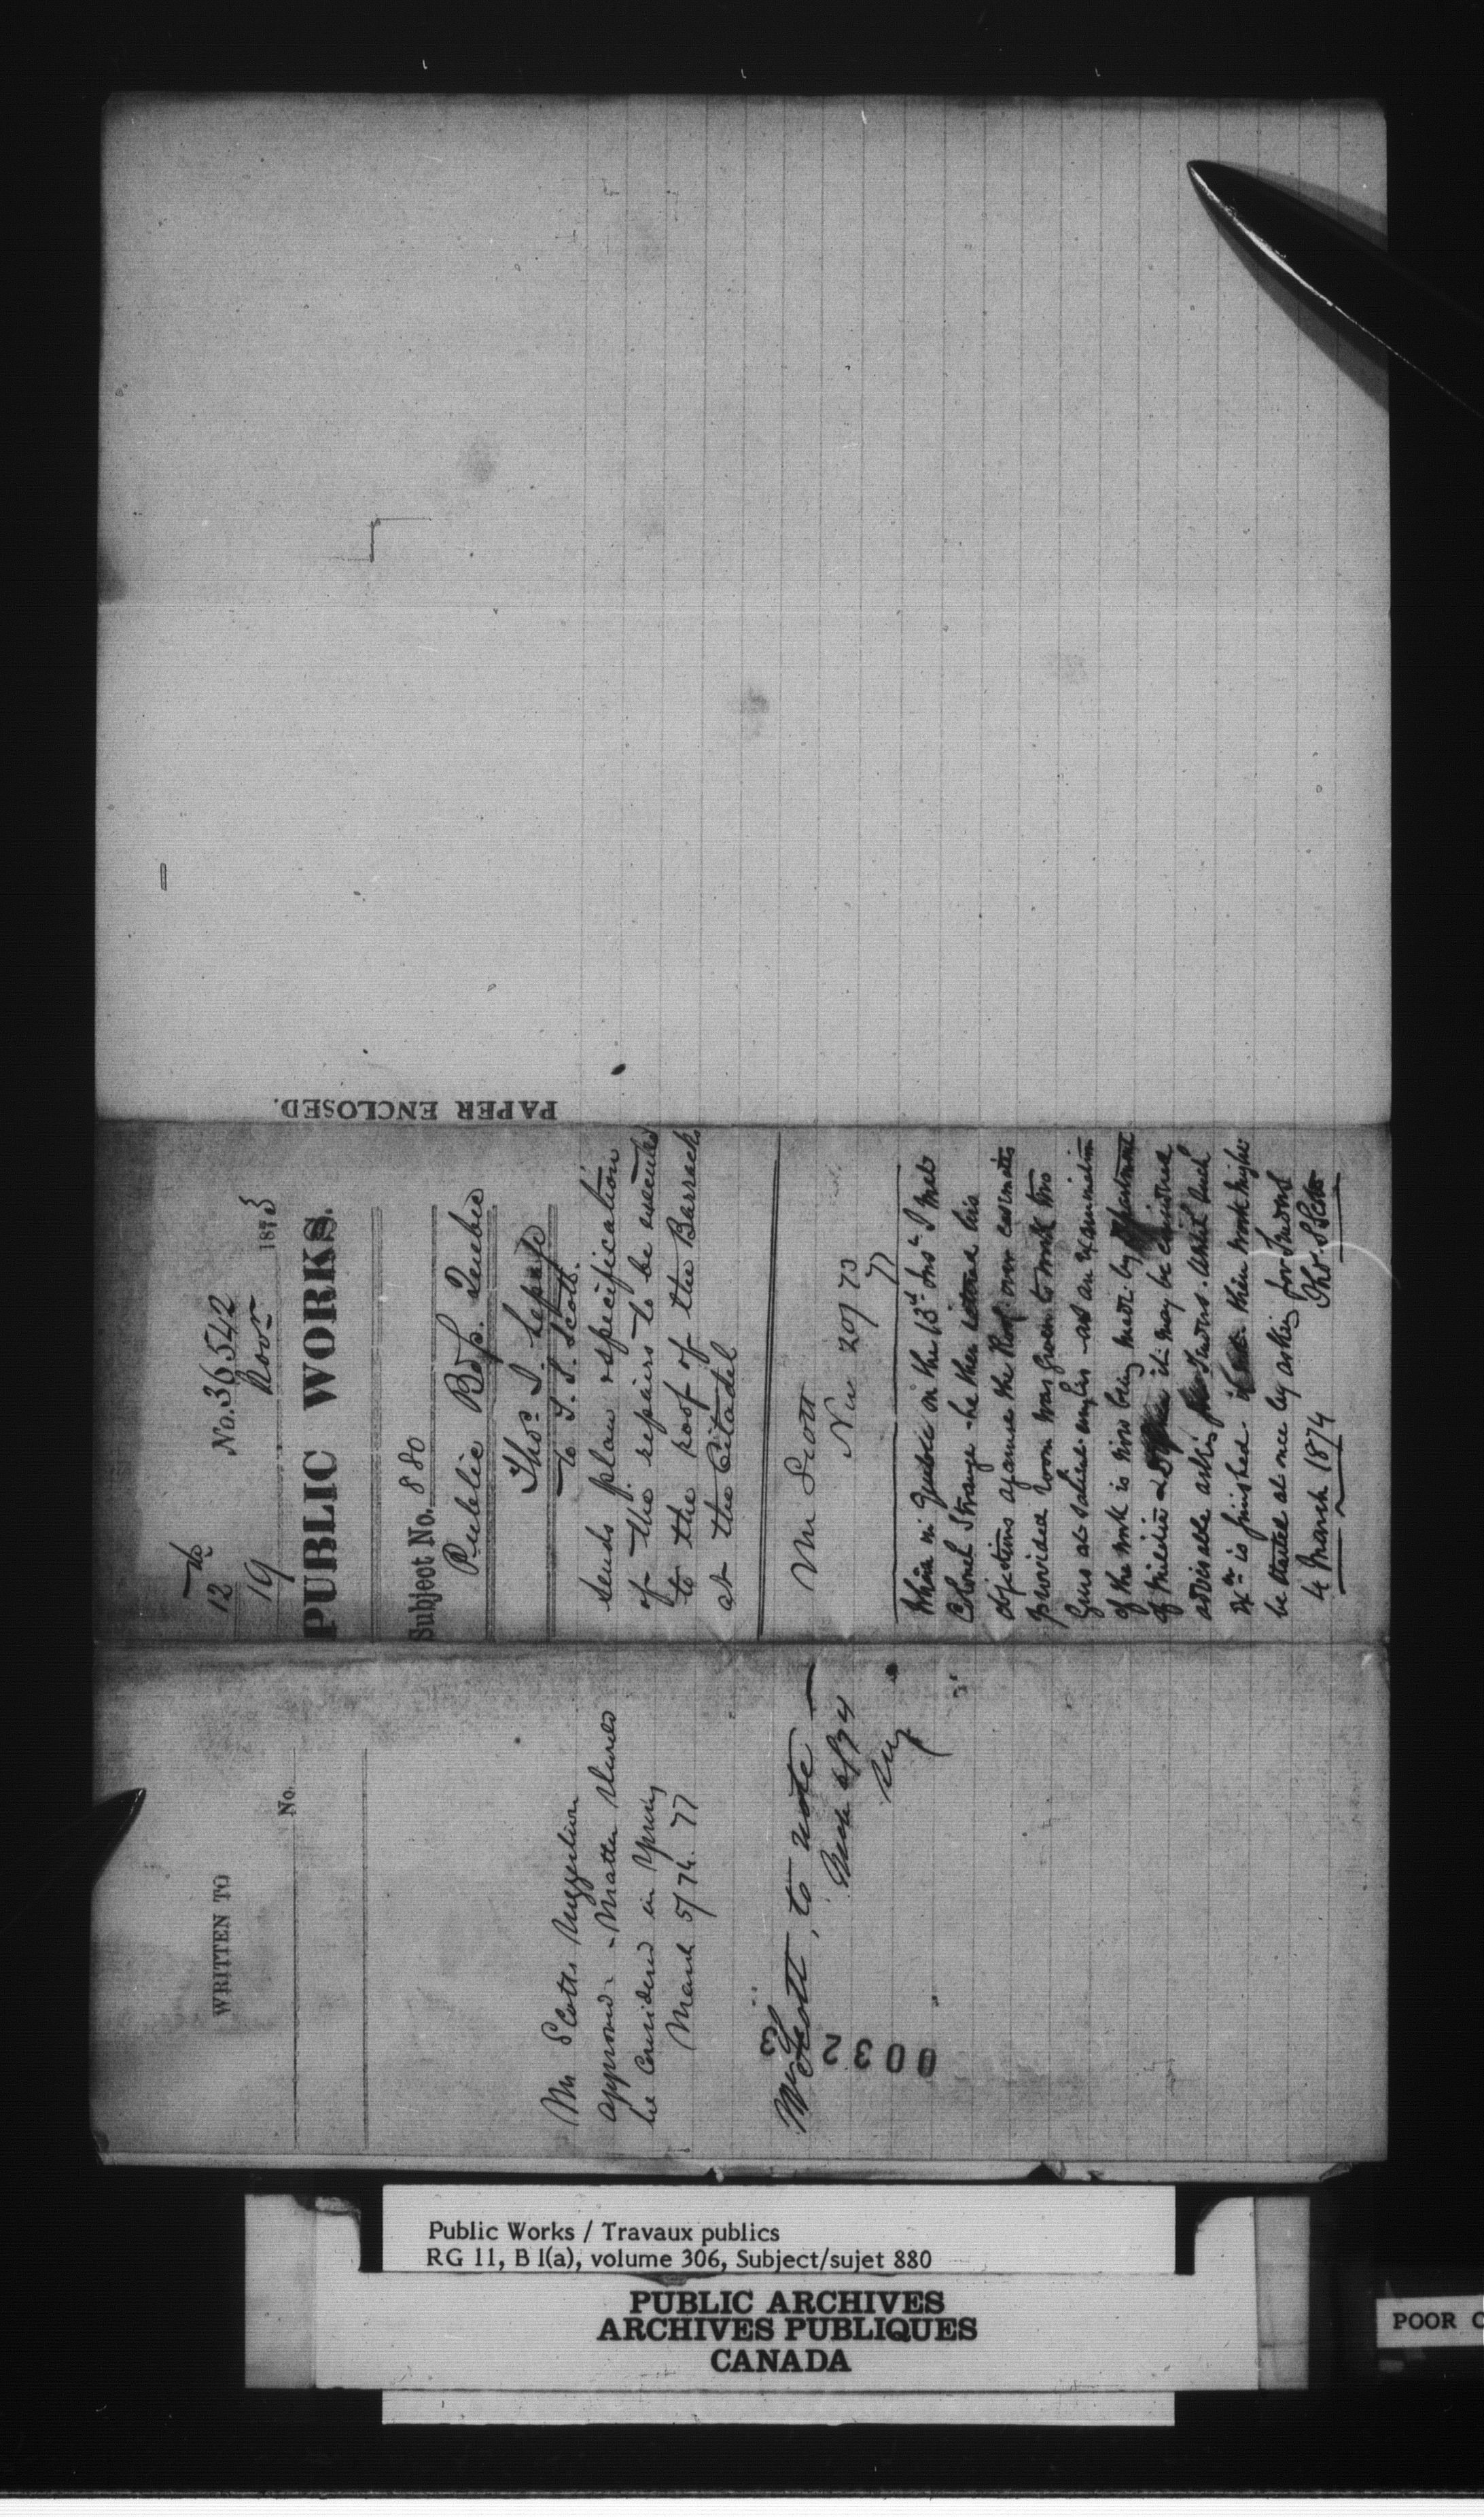 12th
No. 36542
19 Novr 1873
PUBLIC WORKS.
Subject No. 880
Public Bdgs. Quebec
Thos. J. Lepage
to T. S. Scott.
Sends plan & specification
of the repairs to be executed
to the roof of the Barracks
at the Citadel
Mr Scott
Nov 20/73
When in Quebec on the 13th Inst. I met
Colonel Strange - he then his
objections against the Roof over casemates
provided room was given to work two
Guns at salient angles - as an examination
of the work is now being made by Department
of Militia & it may be considered
advisable asking Tenders until such
Exn is finished then work might
be started at once by asking for Tenders
4 March 1874 Thos. S. Scott
PAPER ENCLOSED.
WRITTEN TO
No.
Mr Scotts suggestion
approved - Matter should
be Considered in Spring
March 5/74.
Mr Scott, to note
0032
Public Works / Travaux publics
RG 11, B 1(a), volume 306, Subject/sujet 880
PUBLIC ARCHIVES
ARCHIVES PUBLIQUES
CANADA
POOR